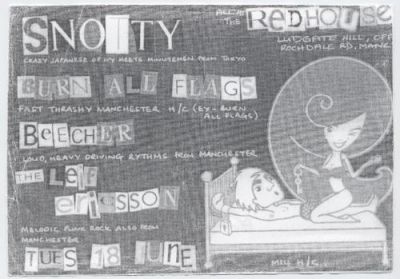 SNOTTY
CRAZY JAPANESE OI IVY MEETS MINUTEMEN FROM TOKYO
BURN ALL FLAGS
FAST THRASHY MANCHESTER H/C (EX-BURN
ALL FLAGS)
BEECHER
LOUD, HEAVY DRIVING RYTHMS FROM MANCHESTER
THE LEIF
ERICSSON
MELODIC PUNK ROCK ALSO FROM
MANCHESTER
TUES 18 JUNE
THE
REDHOUSE
LUDGATE HILL, OFF
ROCHDALE RD, MANC